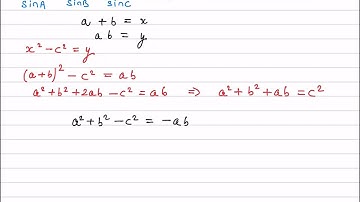 sinA sinB sinC
a + b = x
ab = y
x² - c² = y
(a+b)² - c² = ab
a² + b² + 2ab - c² = ab ⇒ a² + b² + ab = c²
a² + b² - c² = -ab